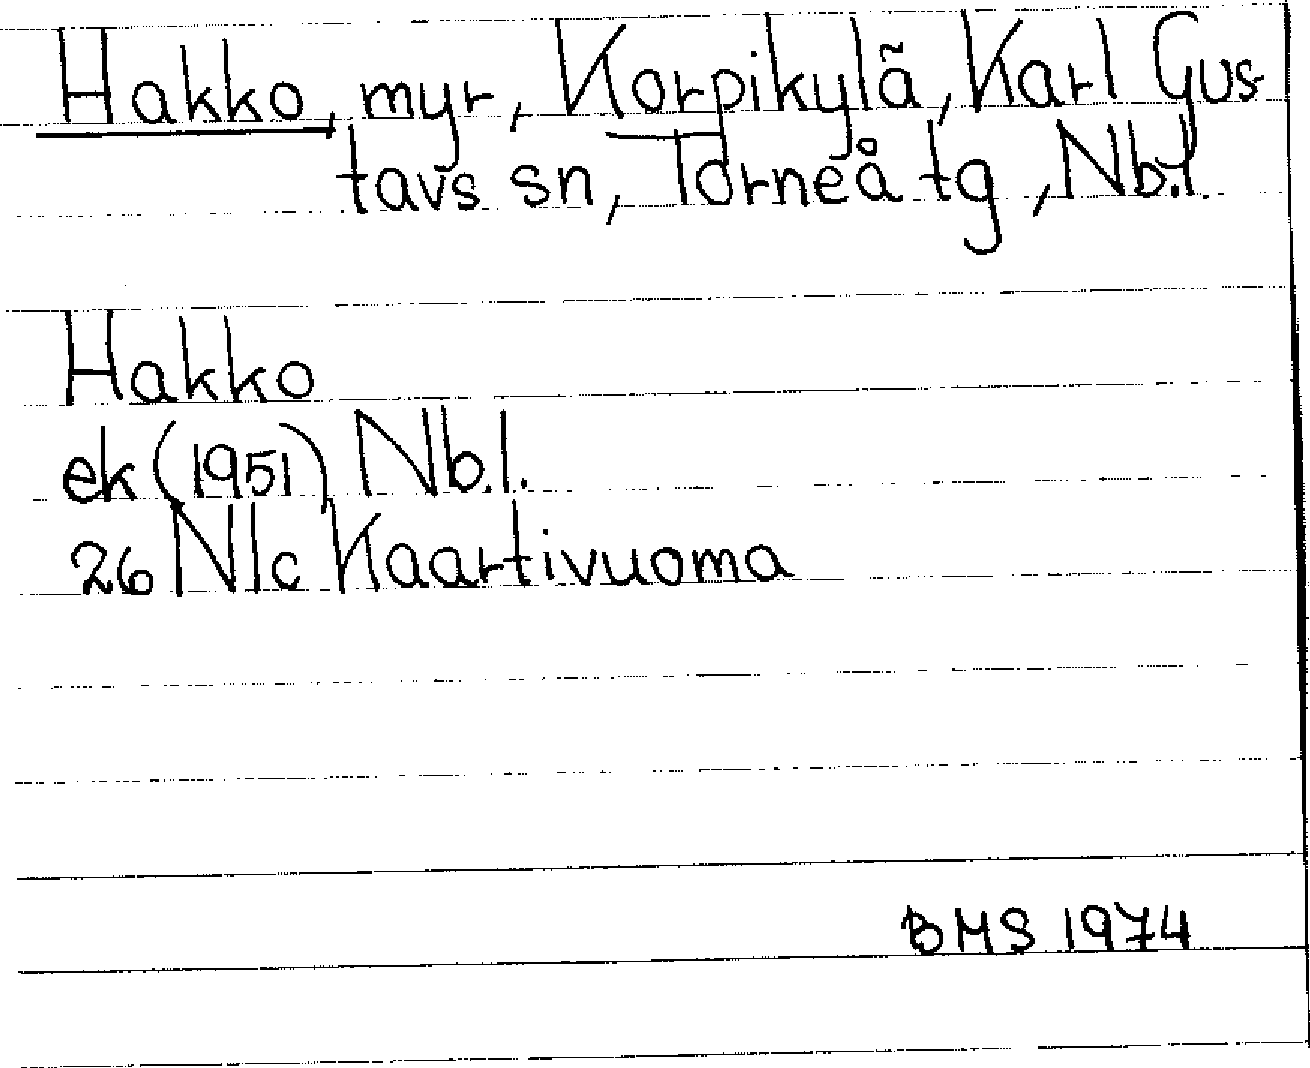 Hakko, myr, Korpikylä, Karl Gus-
tavs sn, Torneå tg, Nb.l.
Hakko
ek (1951) Nb.l.
26 N1c Kaartivuoma
BMS 1974